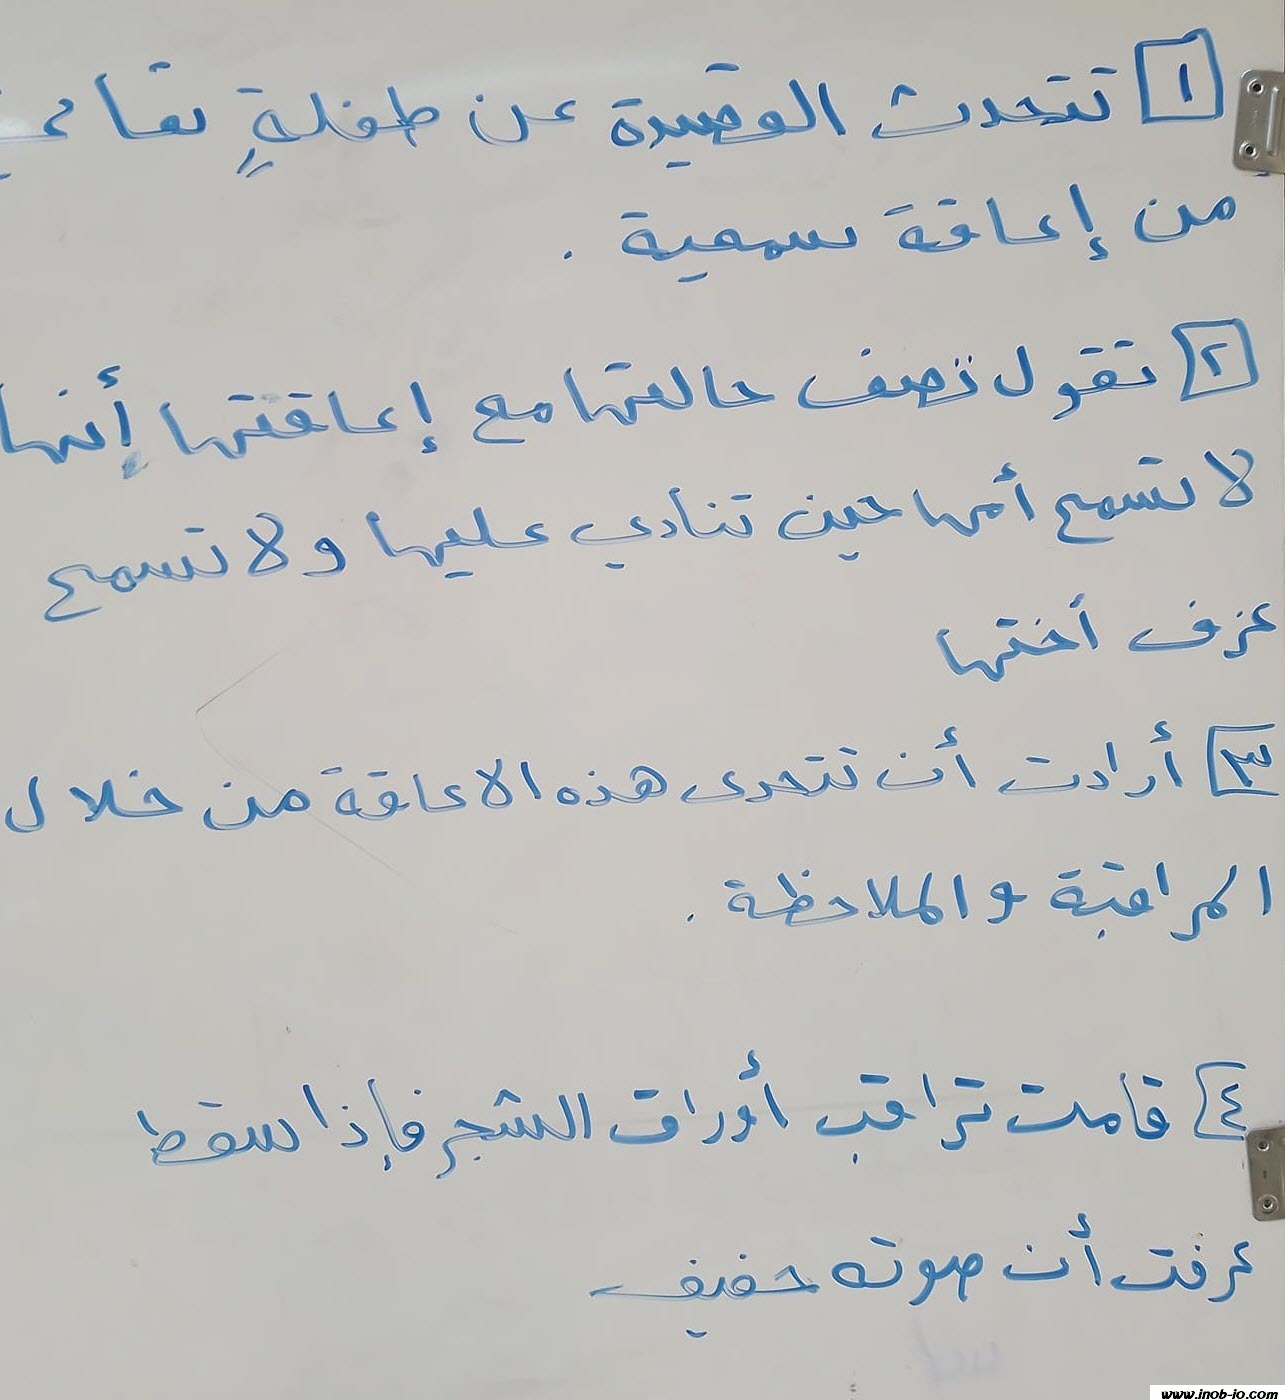 ١ تتحدث القصيدة عن طفلةٍ تعاني
من إعاقة سمعية .
٢ تقول تصف حالتها مع إعاقتها إنها
لا تسمع أمها حين تنادي عليها ولا تسمع
عزف أختها
٣ أرادت أن تتحدى هذه الاعاقة من خلال
المراقبة والملاحظة .
٤ قامت تراقب أوراق الشجر فإذا سقط
عرفت أن صوته حفيف
www.inob-io.com